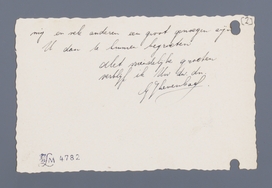 mij en vele anderen een groot genoegen zijn
U dan te kunnen begroeten
Met vriendelijke groeten
verblijf ik Uw dw dn.
M 4782